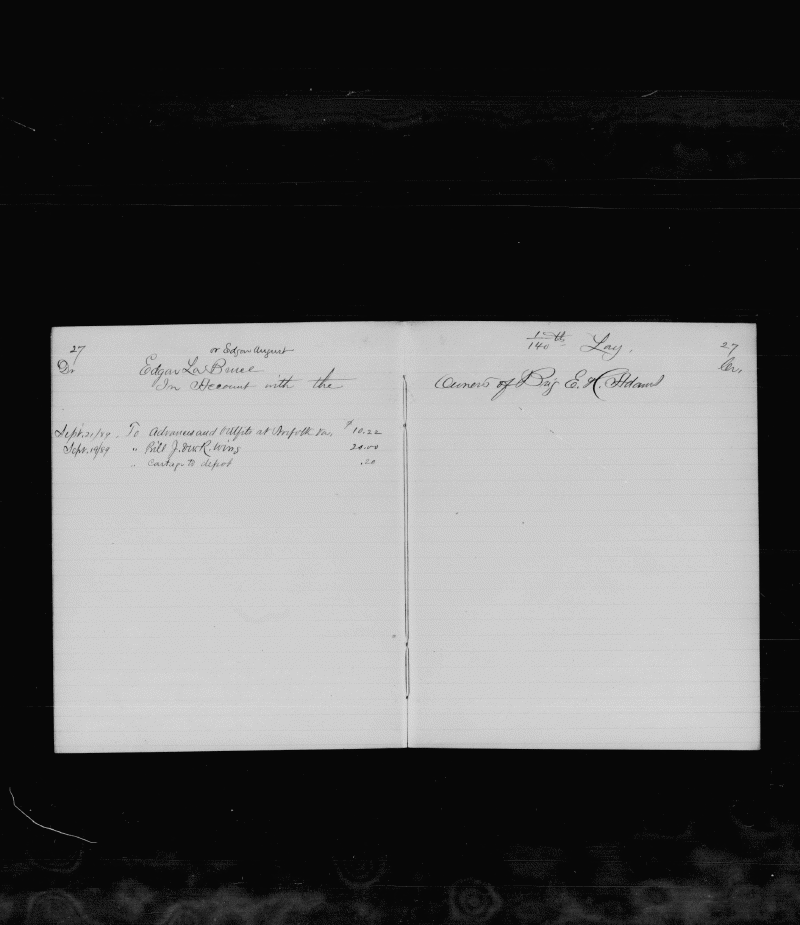 27
or Edgar August
Dr Edgar La Bruce
In Account with the
Sept. 21/89. To Advances and Outfits at Norfolk Va. $10.22
Sept. 19/89 " Bill J. & W. R. Wing 20.00
" Cartage to depot .20
1/140 th Lay. 27
Cr.
Owners of Brig E. H. Adams